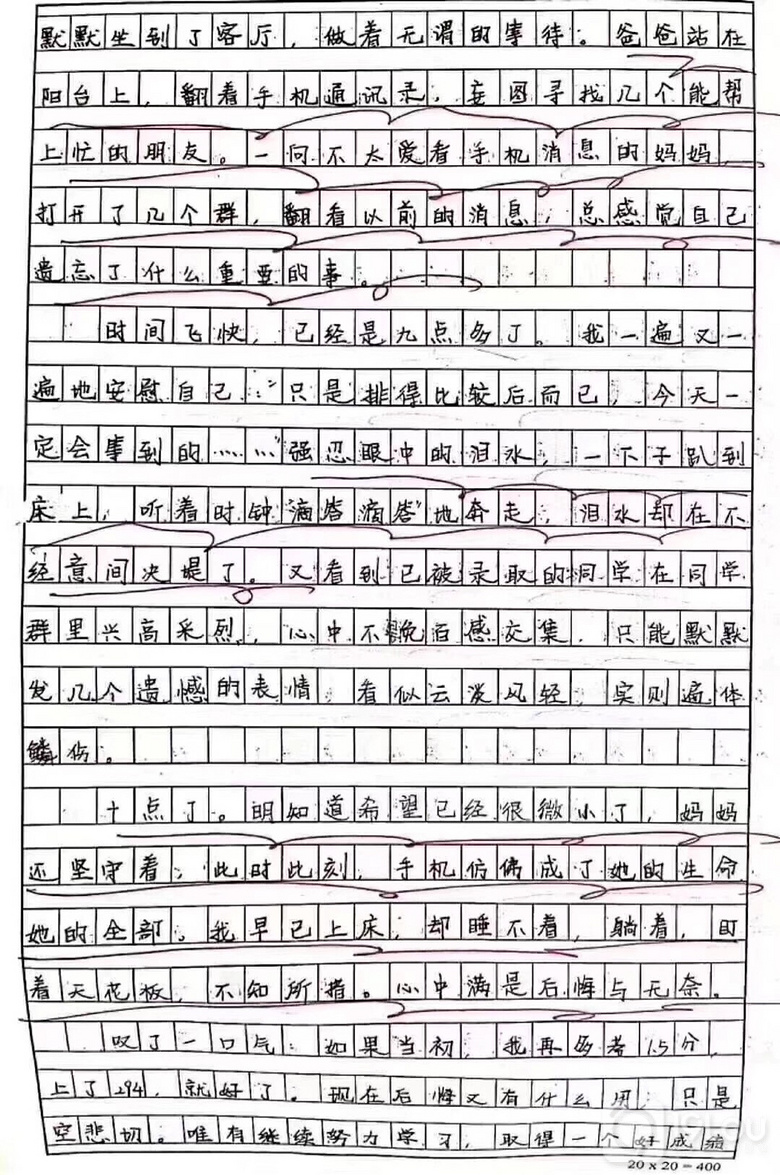 默默坐到了客厅，做着无谓的等待。爸爸站在
阳台上，翻着手机通讯录，妄图寻找几个能帮
上忙的朋友。一向不太爱看手机消息的妈妈，
打开了几个群，翻看以前的消息，总感觉自己
遗忘了什么重要的事。
时间飞快，已经是九点多了。我一遍又一
遍地安慰自己：“只是排得比较后而已，今天一
定会等到的……”强忍眼中的泪水，一下子趴到
床上，听着时钟“滴答滴答”地奔走，泪水却在不
经意间决堤了。又看到已被录取的同学在同学
群里兴高采烈，心中不免百感交集，只能默默
发几个遗憾的表情，看似云淡风轻，实则遍体
鳞伤。
十点了。明知道希望已经很微小了，妈妈
还坚守着；此时此刻，手机仿佛成了她的生命
她的全部。我早已上床，却睡不着，躺着，盯
着天花板，不知所措。心中满是后悔与无奈。
叹了一口气：如果当初，我再多考1.5分，
上了294，就好了。现在后悔又有什么用；只是
空悲切。唯有继续努力学习，取得一个好成绩
20×20=400
19lou